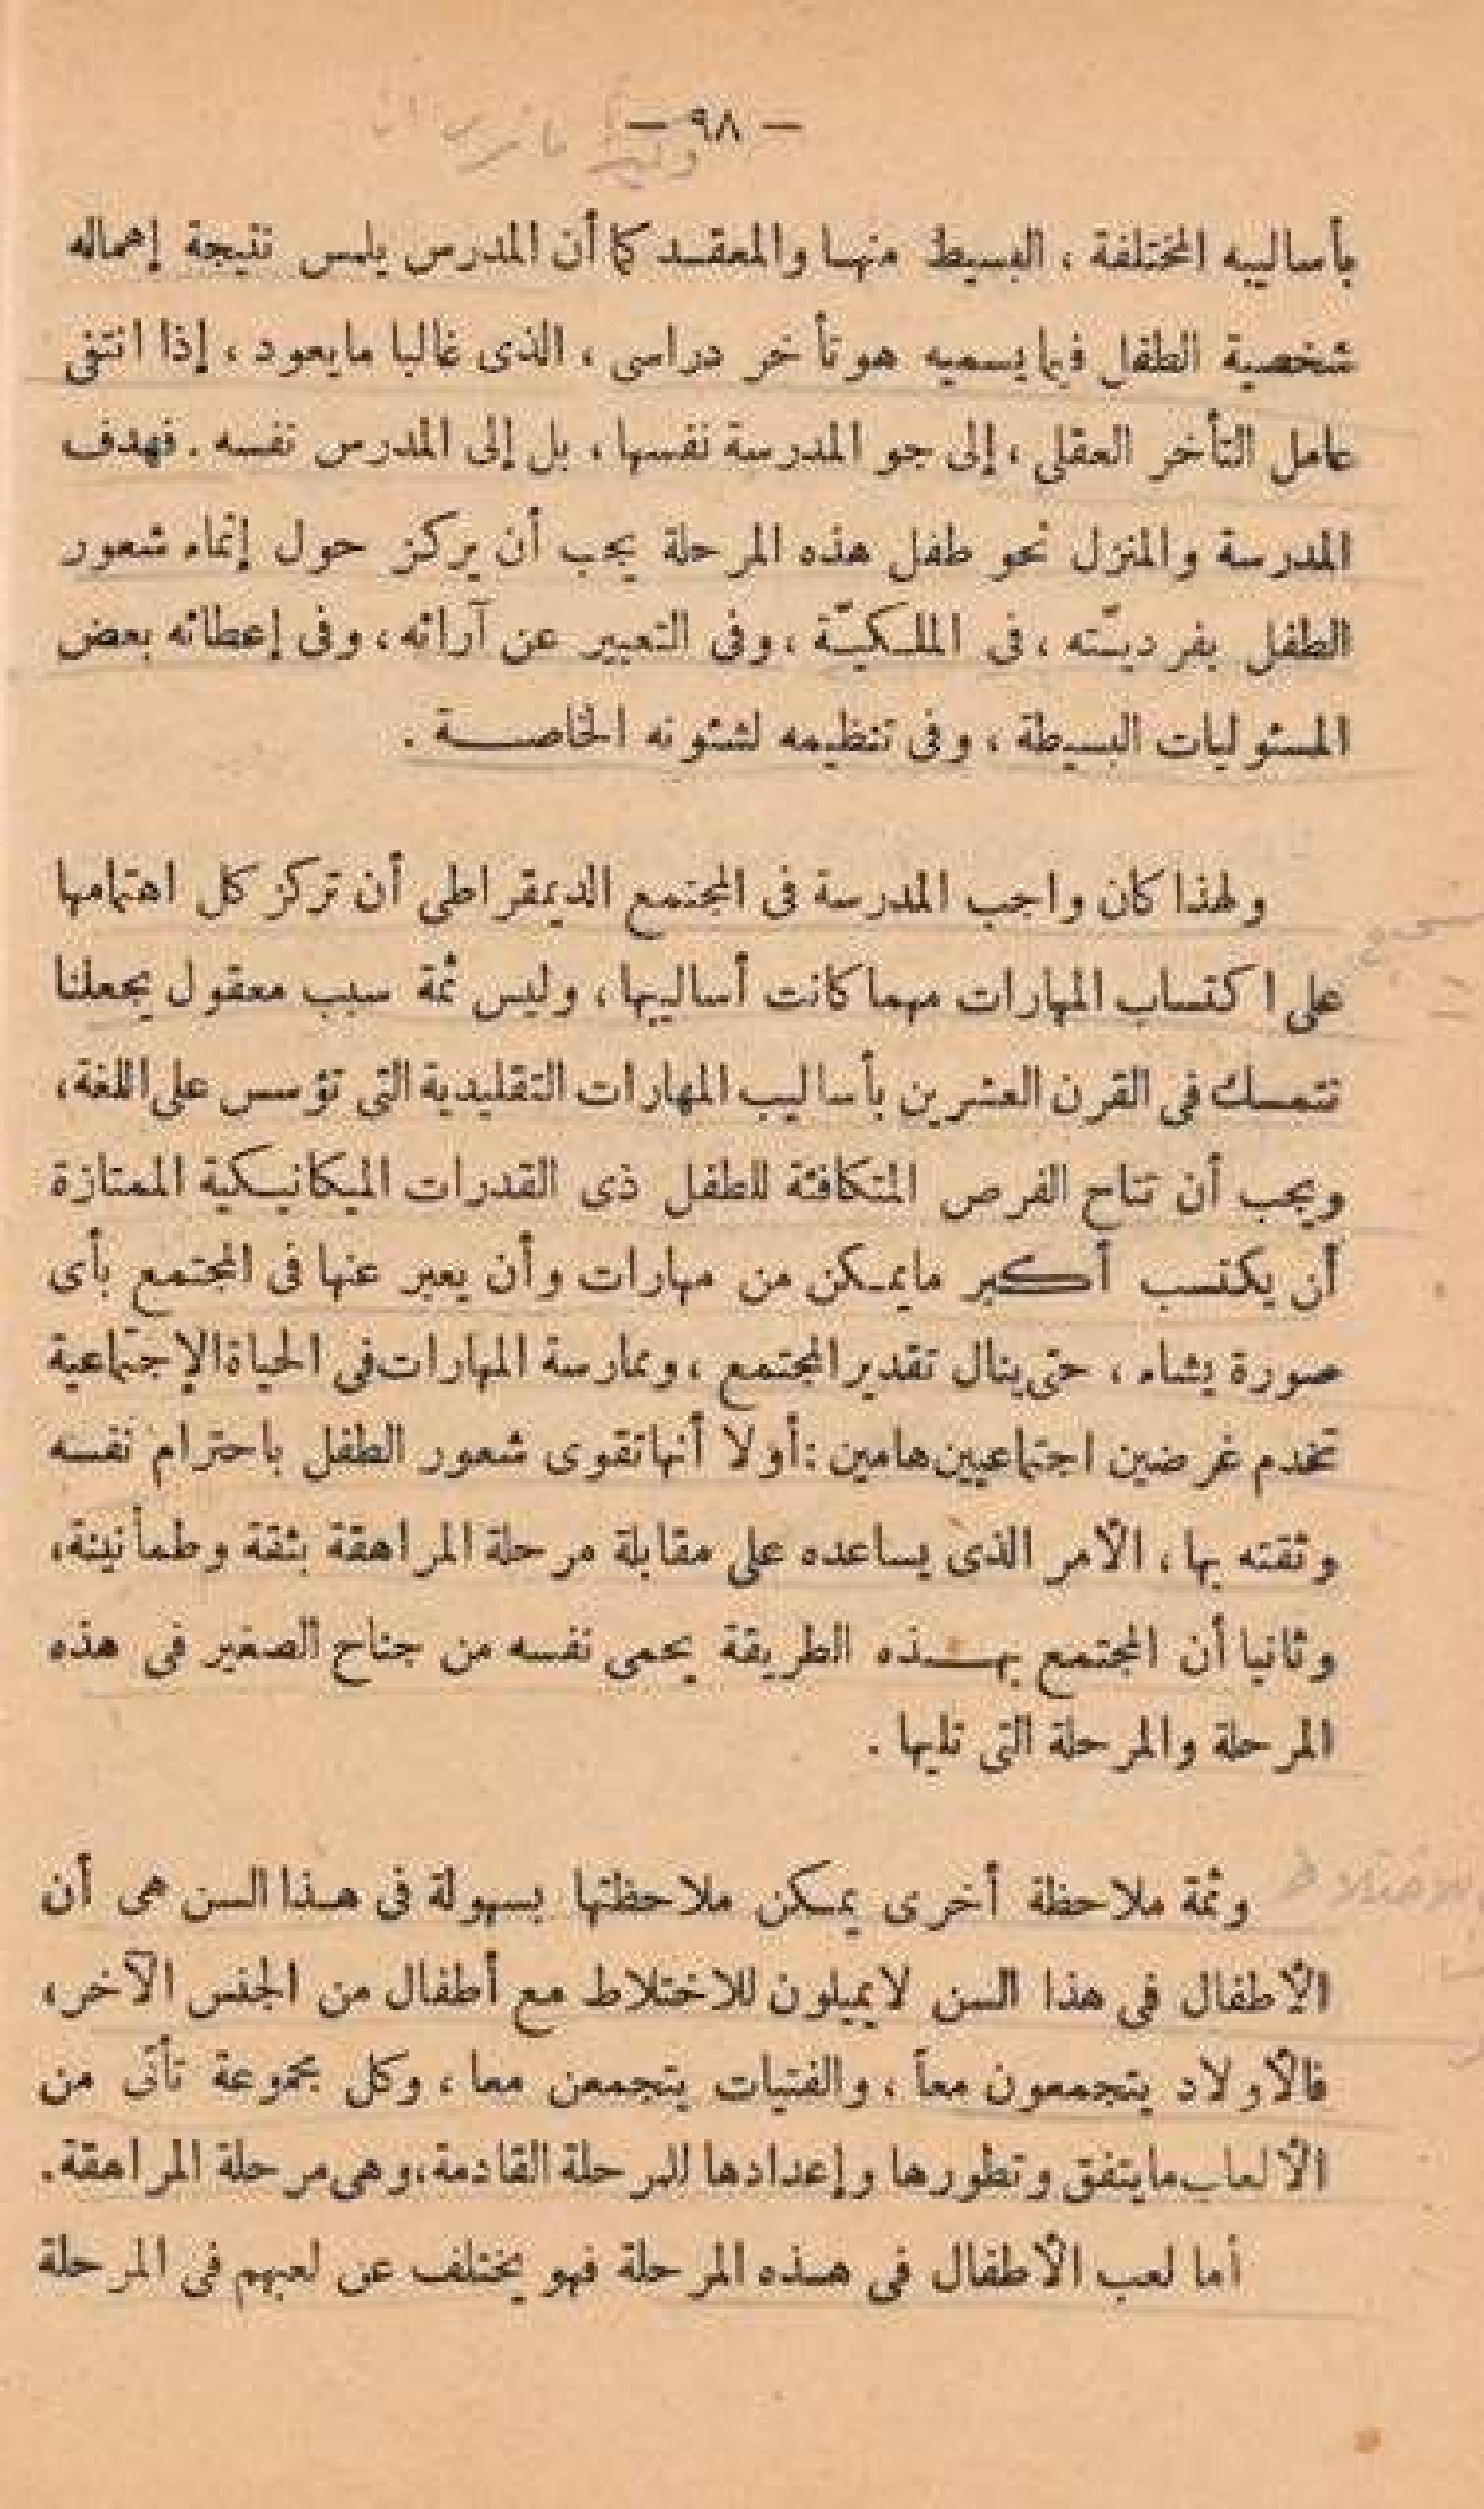 — ٩٨ —
بأساليبه المختلفة ، البسيط منها والمعقد كما أن المدرس يلمس نتيجة إهماله
شخصية الطفل فيما يسميه هو تأخر دراسى ، الذى غالبا ما يعود ، إذا انتفى
عامل التأخر العقلى ، إلى جو المدرسة نفسها ، بل إلى المدرس نفسه . فهدف
المدرسة والمنزل نحو طفل هذه المرحلة يجب أن يركز حول إنماء شعور
الطفل بفرديّته ، فى الملكيّة ، وفى التعبير عن آرائه ، وفى إعطائه بعض
المسئوليات البسيطة ، وفى تنظيمه لشئونه الخاصة .
ولهذا كان واجب المدرسة فى المجتمع الديمقراطى أن تركز كل اهتمامها
على اكتساب المهارات مهما كانت أساليبها ، وليس ثمة سبب معقول يجعلنا
نتمسك فى القرن العشرين بأساليب المهارات التقليدية التى تؤسس على اللغة ،
ويجب أن تتاح الفرص المتكافئة للطفل ذى القدرات الميكانيكية الممتازة
أن يكتسب أكبر ما يمكن من مهارات وأن يعبر عنها فى المجتمع بأى
صورة يشاء ، حتى ينال تقدير المجتمع ، وممارسة المهارات فى الحياة الإجتماعية
تخدم غرضين اجتماعيين هامين : أولا أنها تقوى شعور الطفل باحترام نفسه
وثقته بها ، الأمر الذى يساعده على مقابلة مرحلة المراهقة بثقة وطمأنينة ،
وثانيا أن المجتمع بهذه الطريقة يحمى نفسه من جناح الصغير فى هذه
المرحلة والمرحلة التى تليها .
وثمة ملاحظة أخرى يمكن ملاحظتها بسهولة فى هذا السن هى أن
الأطفال فى هذا السن لا يميلون للاختلاط مع أطفال من الجنس الآخر ،
فالأولاد يتجمعون معاً ، والفتيات يتجمعن معا ، وكل مجموعة تأتى من
الألعاب ما يتفق وتطورها وإعدادها للمرحلة القادمة ، وهى مرحلة المراهقة .
أما لعب الأطفال فى هذه المرحلة فهو يختلف عن لعبهم فى المرحلة